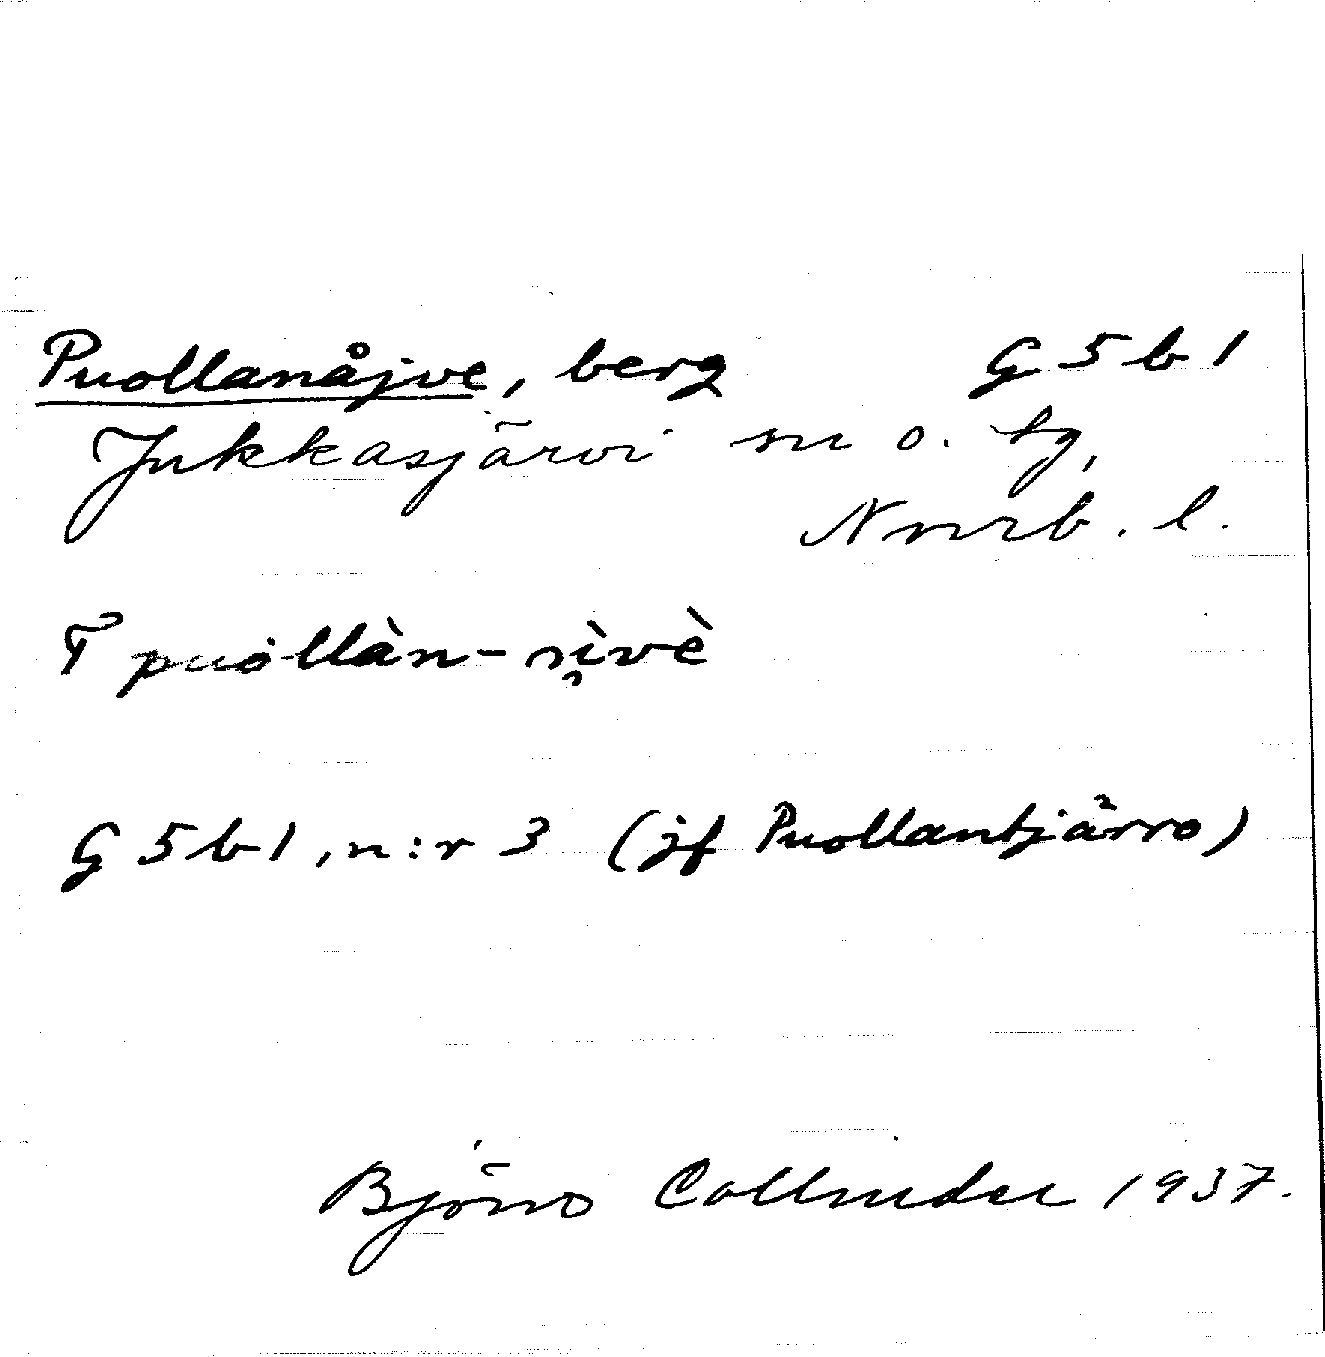 Puollanåjve, berg G 5 b 1
Jukkasjärvi sn o. tg,
Norrb. l.
T puȯllàn-
G 5 b 1, n:r 3 (jf Puollantjårro)
Björn Collinder 1937.